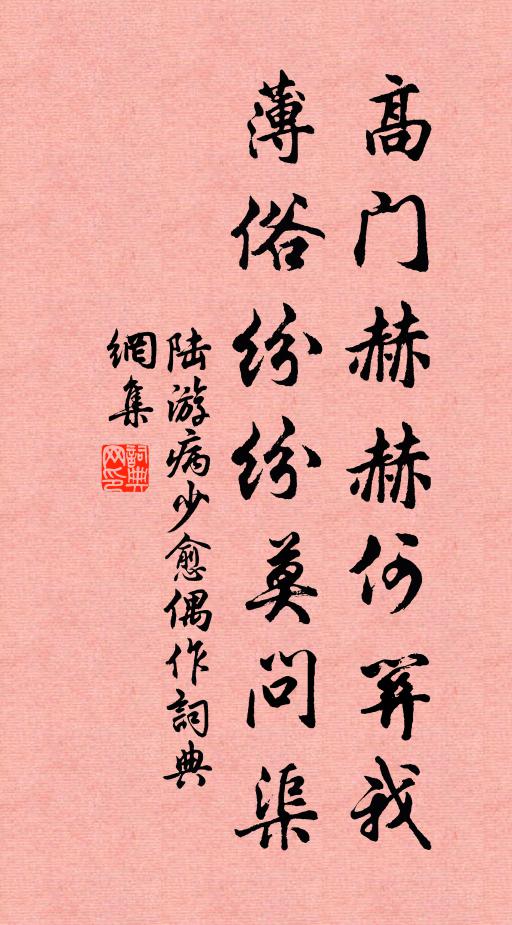 高门赫赫何关我
薄俗纷纷莫问渠
陆游病少愈偶作詞典
網集
詞典
网印